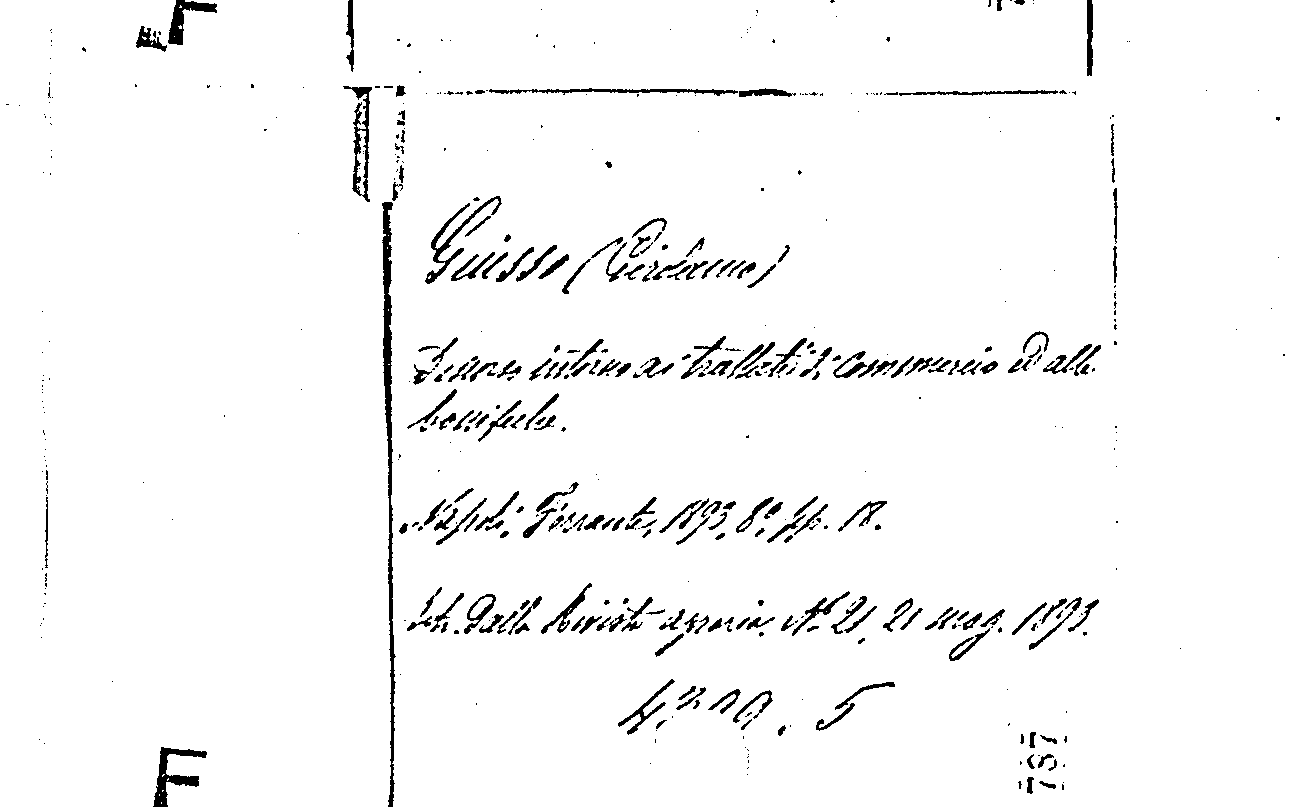 F
Giusso (Girolamo)
intorno ai trattati di commercio ed alle
bonifiche.
Napoli, Ferrante, 1893, 8º, pp. 18.
Estr. dalla Rivista agraria, Nº 21, 21 mag. 1893.
5
F
787